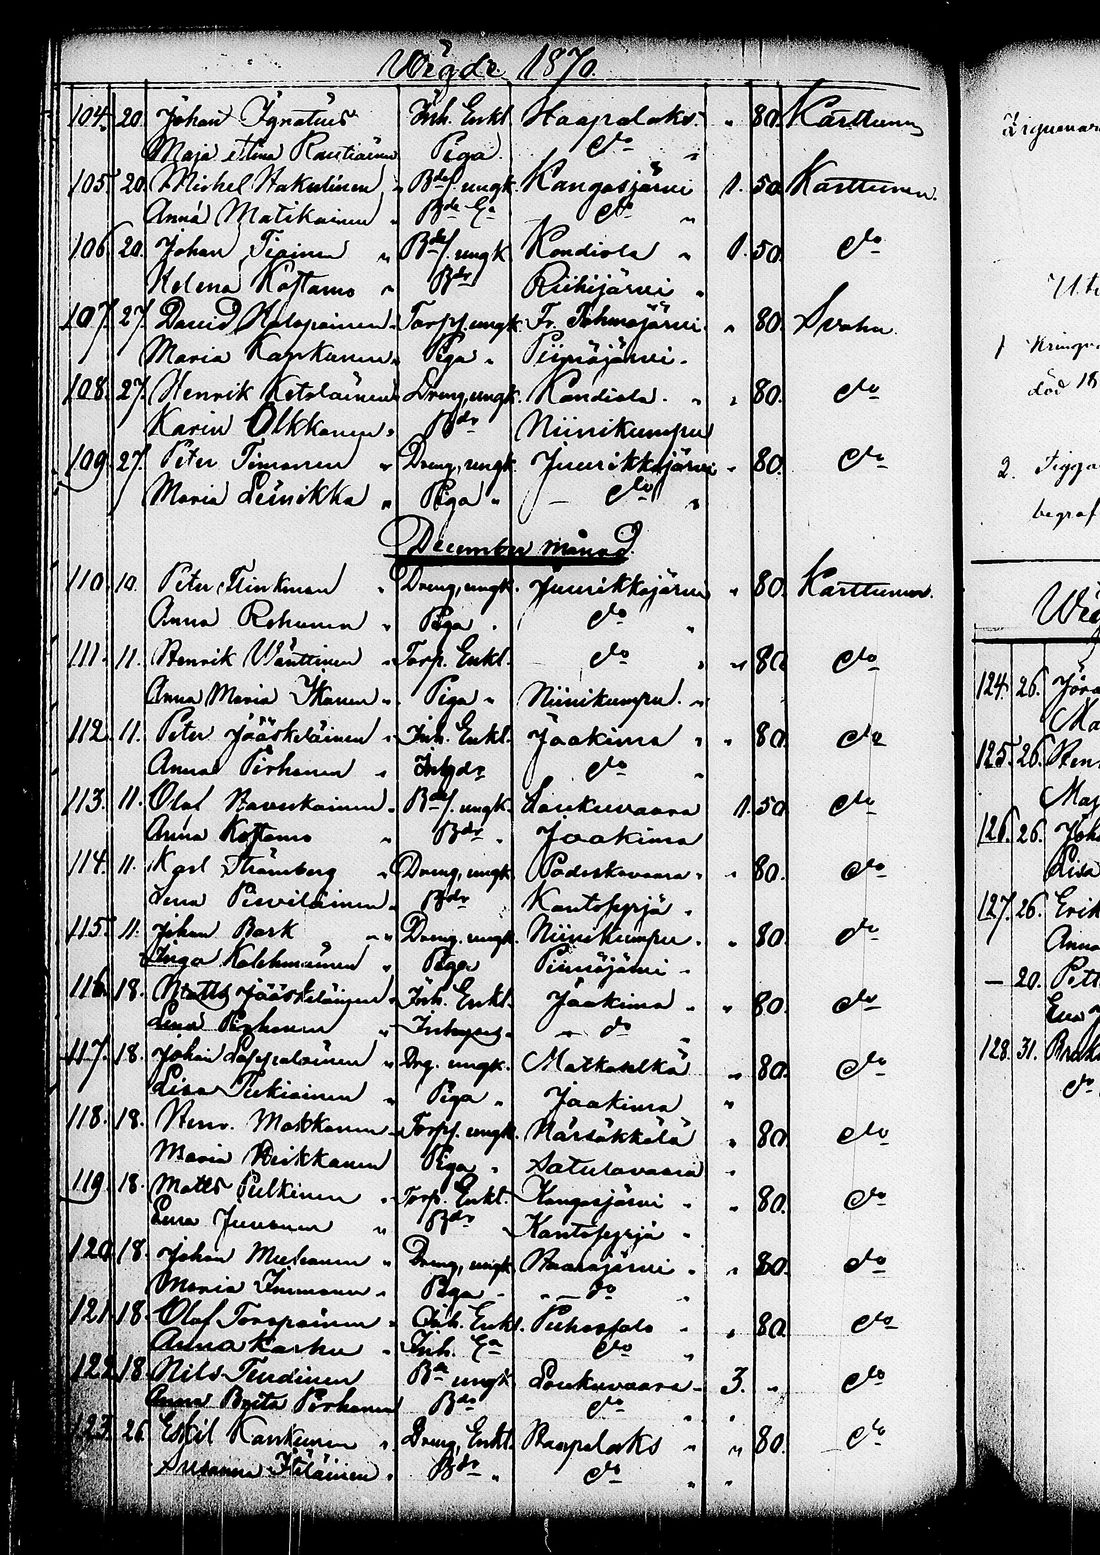 Wigde 1870.
104. 20. Johan Ignatius Inh. Enkl. Haapalaks. " 80. Karttunen
Maja Stina Rautiainen Piga do "
105. 20. Michel Hakulinen " Bdes. ungk. Kangasjärvi 1. 50. Karttunen.
Anna Matikainen " Bde Ea do "
106. 20. Johan Tiainen " Bdes. ungk. Kondiola " 1. 50. do
Helena Kostamo " Bdr Riihijärvi "
107. 27. David Holopainen " Torpp. ungk. Fr. Tohmajärvi " 80. Svahn.
Maria Karkunen " Piga " Piimäjärvi "
108. 27. Henrik Ketolainen Dreng, ungk. Kondiola " " 80. do
Karin Olkkonen " Bdr Niinikumpu
109. 27. Peter Timonen " Dreng, ungk. Juurikkajärvi " 80. do
Maria Leinikka " Piga " — do "
December månad.
110. 10. Peter Flinkman " Dreng, ungk. Juurikkajärvi " 80. Karttunen.
Anna Rehunen " Piga " do "
111. 11. Henrik Wänttinen " Torp. Enkl. do " " 80. do
Anna Maria Ikonen " Piga " Niinikumpu "
112. 11. Peter Jääskeläinen " Inh. Enkl. Jaakima " " 80. do
Anna Pirhonen " Inhdr do "
113. 11. Olof Havukainen " Bdes. ungk. Loukuvaara 1. 50. do
Anna Kostamo " Bdr " Jaakima
114. 11. Karl Strömberg " Dreng, ungk. Poduskavaara " " 80. do
Lena " Bdr Kantosyrjä "
115. 11. Johan Bork " " Dreng. ungk. Niinikumpu " " 80. do
Inga Kolehmainen " Piga Piimäjärvi "
116. 18. Matts Jääskeläinen " Inh. Enkl. Jaakima " " 80. do
Lisa Pirhonen " — do "
117. 18. Johan Lappalainen " Drg. ungk. Matkaselkä " 80. do
Lisa " Piga " Jaakima "
118. 18. Henr. Makkonen " Torpp. ungk. Värsäkkälä " 80. do
Maria Heikkanen Piga " Satulavaara "
119. 18. Matts Pulkinen " Torp. Enkl. Kangasjärvi " " 80. do
Lena Juvonen " Bdr Kantosyrjä "
120. 18. Johan " Dreng, ungk. Haarajärvi " " 80. do
Maria Immonen " Piga " " — do "
121. 18. Olof Toropainen " Inh. Enkl. Puhossalo " " 80. do
Anna Karhu " Inh. Ea do "
122. 18. Nils Tiudinen Ba ungk. Loukuvaara " 3. " do
Anna Brita Pirhonen Bdr do " "
123. 26. Eskil Karkunen " Dreng, Enkl. Haapalaks " " 80. do
Susanna " Bdr " do " "
död 18
1
2. Figga
begraf
Wig
124. 26. Jöra
Ma
125. 26. Hen
Maj
126. 26. Joh
Lisa
127. 26. Erik
Anna
— 20. Pett
Eva
128. 31.
do